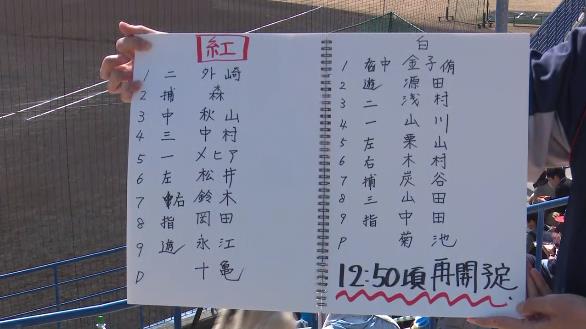 紅
1 二 外崎
2 捕 森
3 中 秋山
4 三 中村
5 一 メヒア
6 左 松井
7 右 鈴木
8 指 岡田
9 遊 永江
P 十亀
白
1 中 金子侑
2 遊 源田
3 二 浅村
4 一 山川
5 左 栗山
6 右 木村
7 捕 炭谷
8 三 山田
9 指 中田
P 菊池
12:50頃 再開予定.